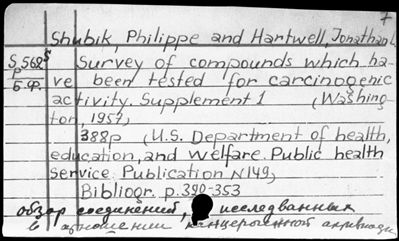 7
Shubik, Philippe and Hartwell, Jonathan L.
S 568 s
P
Б.Ф.
Survey of compounds which ha-
ve been tested for carcinogenic
activity. Supplement 1 (Washing-
ton, 1957)
388p (U.S. Department of health,
education, and welfare. Public health
service. Publication N149)
Bibliogr. p. 390-353
обзор соединений, исследванных
в отношении канцерогенной активнос